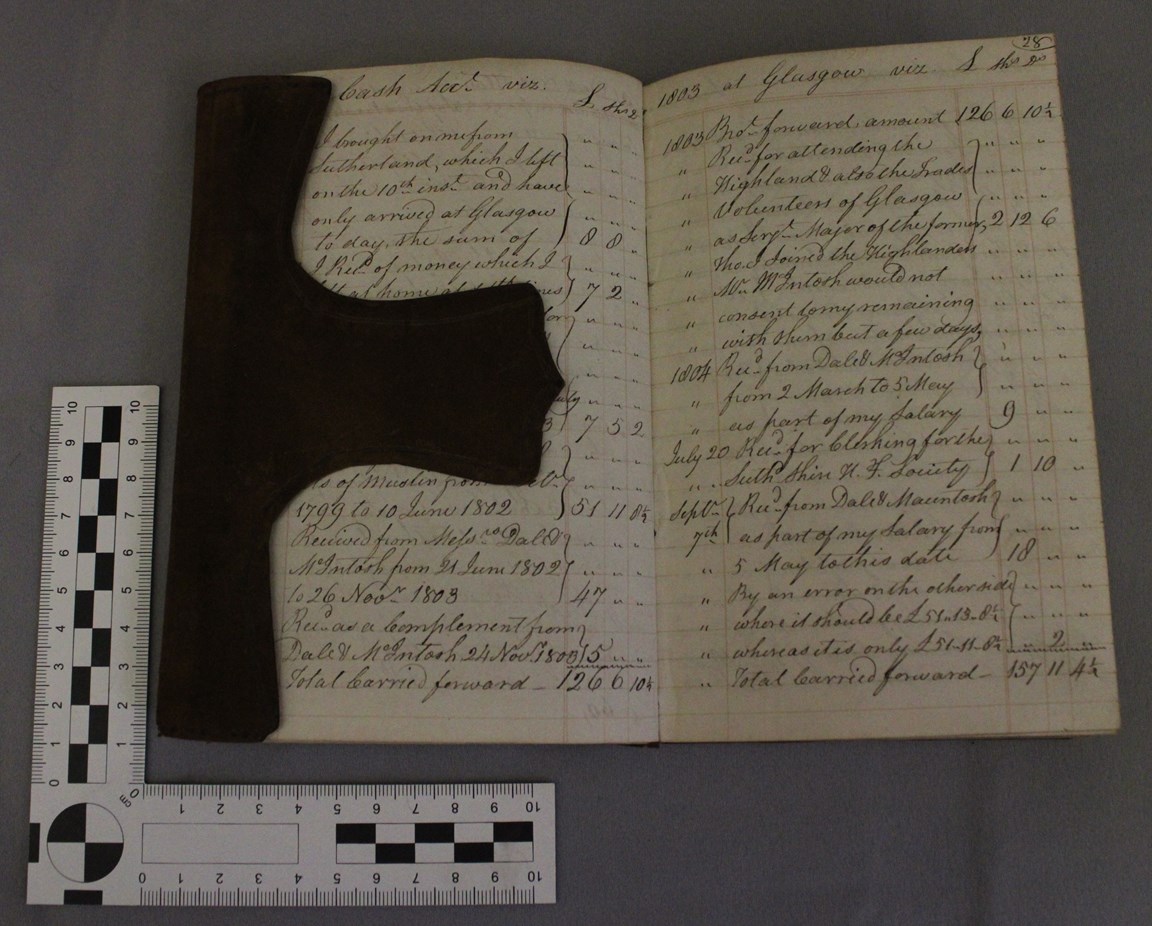 Cash Acct. viz. £ shs. ds.
I brought on me from
Sutherland, which I left
on the 10th inst. and have
only arrived at Glasgow
to day, the sum of 8 8 "
I Recd. of money which I
at home 7 2 "
7 5 2
of Muslin from
1799 to 10 June 1802 51 11 8½
Received from Messrs. Dale &
McIntosh from 21 June 1802
to 26 Novr. 1803 47 " "
Recd. as a Complement from
Dale & McIntosh 24 Novr. 1803 5 " "
Total Carried forward – 126 6 10½
28
1803 at Glasgow viz. £ shs. ds.
1803 Brot. forward amount 126 6 10½
" Recd. for attending the
" Highland & also the Trades
" Volunteers of Glasgow
" as Serjt. Major of the former, 2 12 6
" Tho. I Joined the Highlanders
" Mr. McIntosh would not
" consent to my remaining
" with them but a few days,
1804 Recd. from Dale & McIntosh
" from 2 March to 5 May
" as part of my Salary 9 " "
July 20 Recd. for Clerking for the
" " Suthd. Shire F. Society 1 10 "
Septr. Recd. from Dale & Macintosh
7th as part of my Salary from
" 5 May to this date 18 " "
" By an error on the other side
" where it should be £51–13–8½
" whereas it is only £51–11–8½ " 2 "
" Total Carried forward – 157 11 4½
10 9 8 7 6 5 4 3 2 1 0
10 9 8 7 6 5 4 3 2 1 0
cm
1 2 3 4 5 6 7 8 9 10
0 1 2 3 4 5 6 7 8 9 10